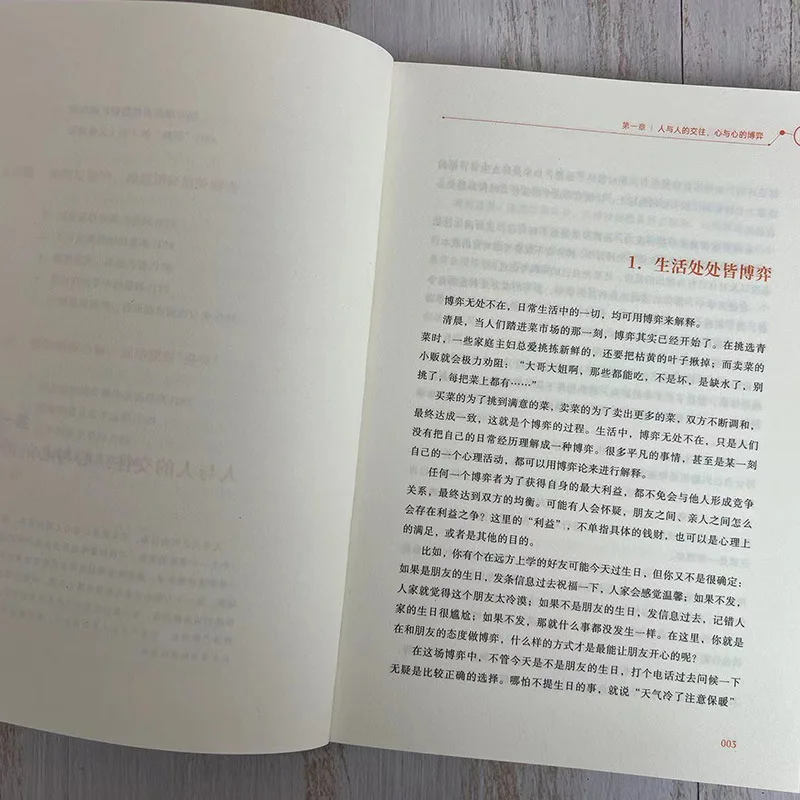 第一章 | 人与人的交往，心与心的博弈
1. 生活处处皆博弈
博弈无处不在，日常生活中的一切，均可用博弈来解释。
清晨，当人们踏进菜市场的那一刻，博弈其实已经开始了。在挑选青
菜时，一些家庭主妇总爱挑拣新鲜的，还要把枯黄的叶子揪掉；而卖菜的
小贩就会极力劝阻：“大哥大姐啊，那些都能吃，不是坏，是缺水了，别
挑了，每把菜上都有……”
买菜的为了挑到满意的菜，卖菜的为了卖出更多的菜，双方不断调和，
最终达成一致，这就是个博弈的过程。生活中，博弈无处不在，只是人们
没有把自己的日常经历理解成一种博弈。很多平凡的事情，甚至是某一刻
自己的一个心理活动，都可以用博弈论来进行解释。
任何一个博弈者为了获得自身的最大利益，都不免会与他人形成竞争
关系，最终达到双方的均衡。可能有人会怀疑，朋友之间、亲人之间怎么
会存在利益之争？这里的“利益”，不单指具体的钱财，也可以是心理上
的满足，或者是其他的目的。
比如，你有个在远方上学的好友可能今天过生日，但你又不是很确定：
如果是朋友的生日，发条信息过去祝福一下，人家会感觉温馨；如果不发，
人家就觉得这个朋友太冷漠；如果不是朋友的生日，发信息过去，记错人
家的生日很尴尬；如果不发，那就什么事都没发生一样。在这里，你就是
在和朋友的态度做博弈，什么样的方式才是最能让朋友开心的呢？
在这场博弈中，不管今天是不是朋友的生日，打个电话过去问候一下
无疑是比较正确的选择。哪怕不提生日的事，就说“天气冷了注意保暖”
003